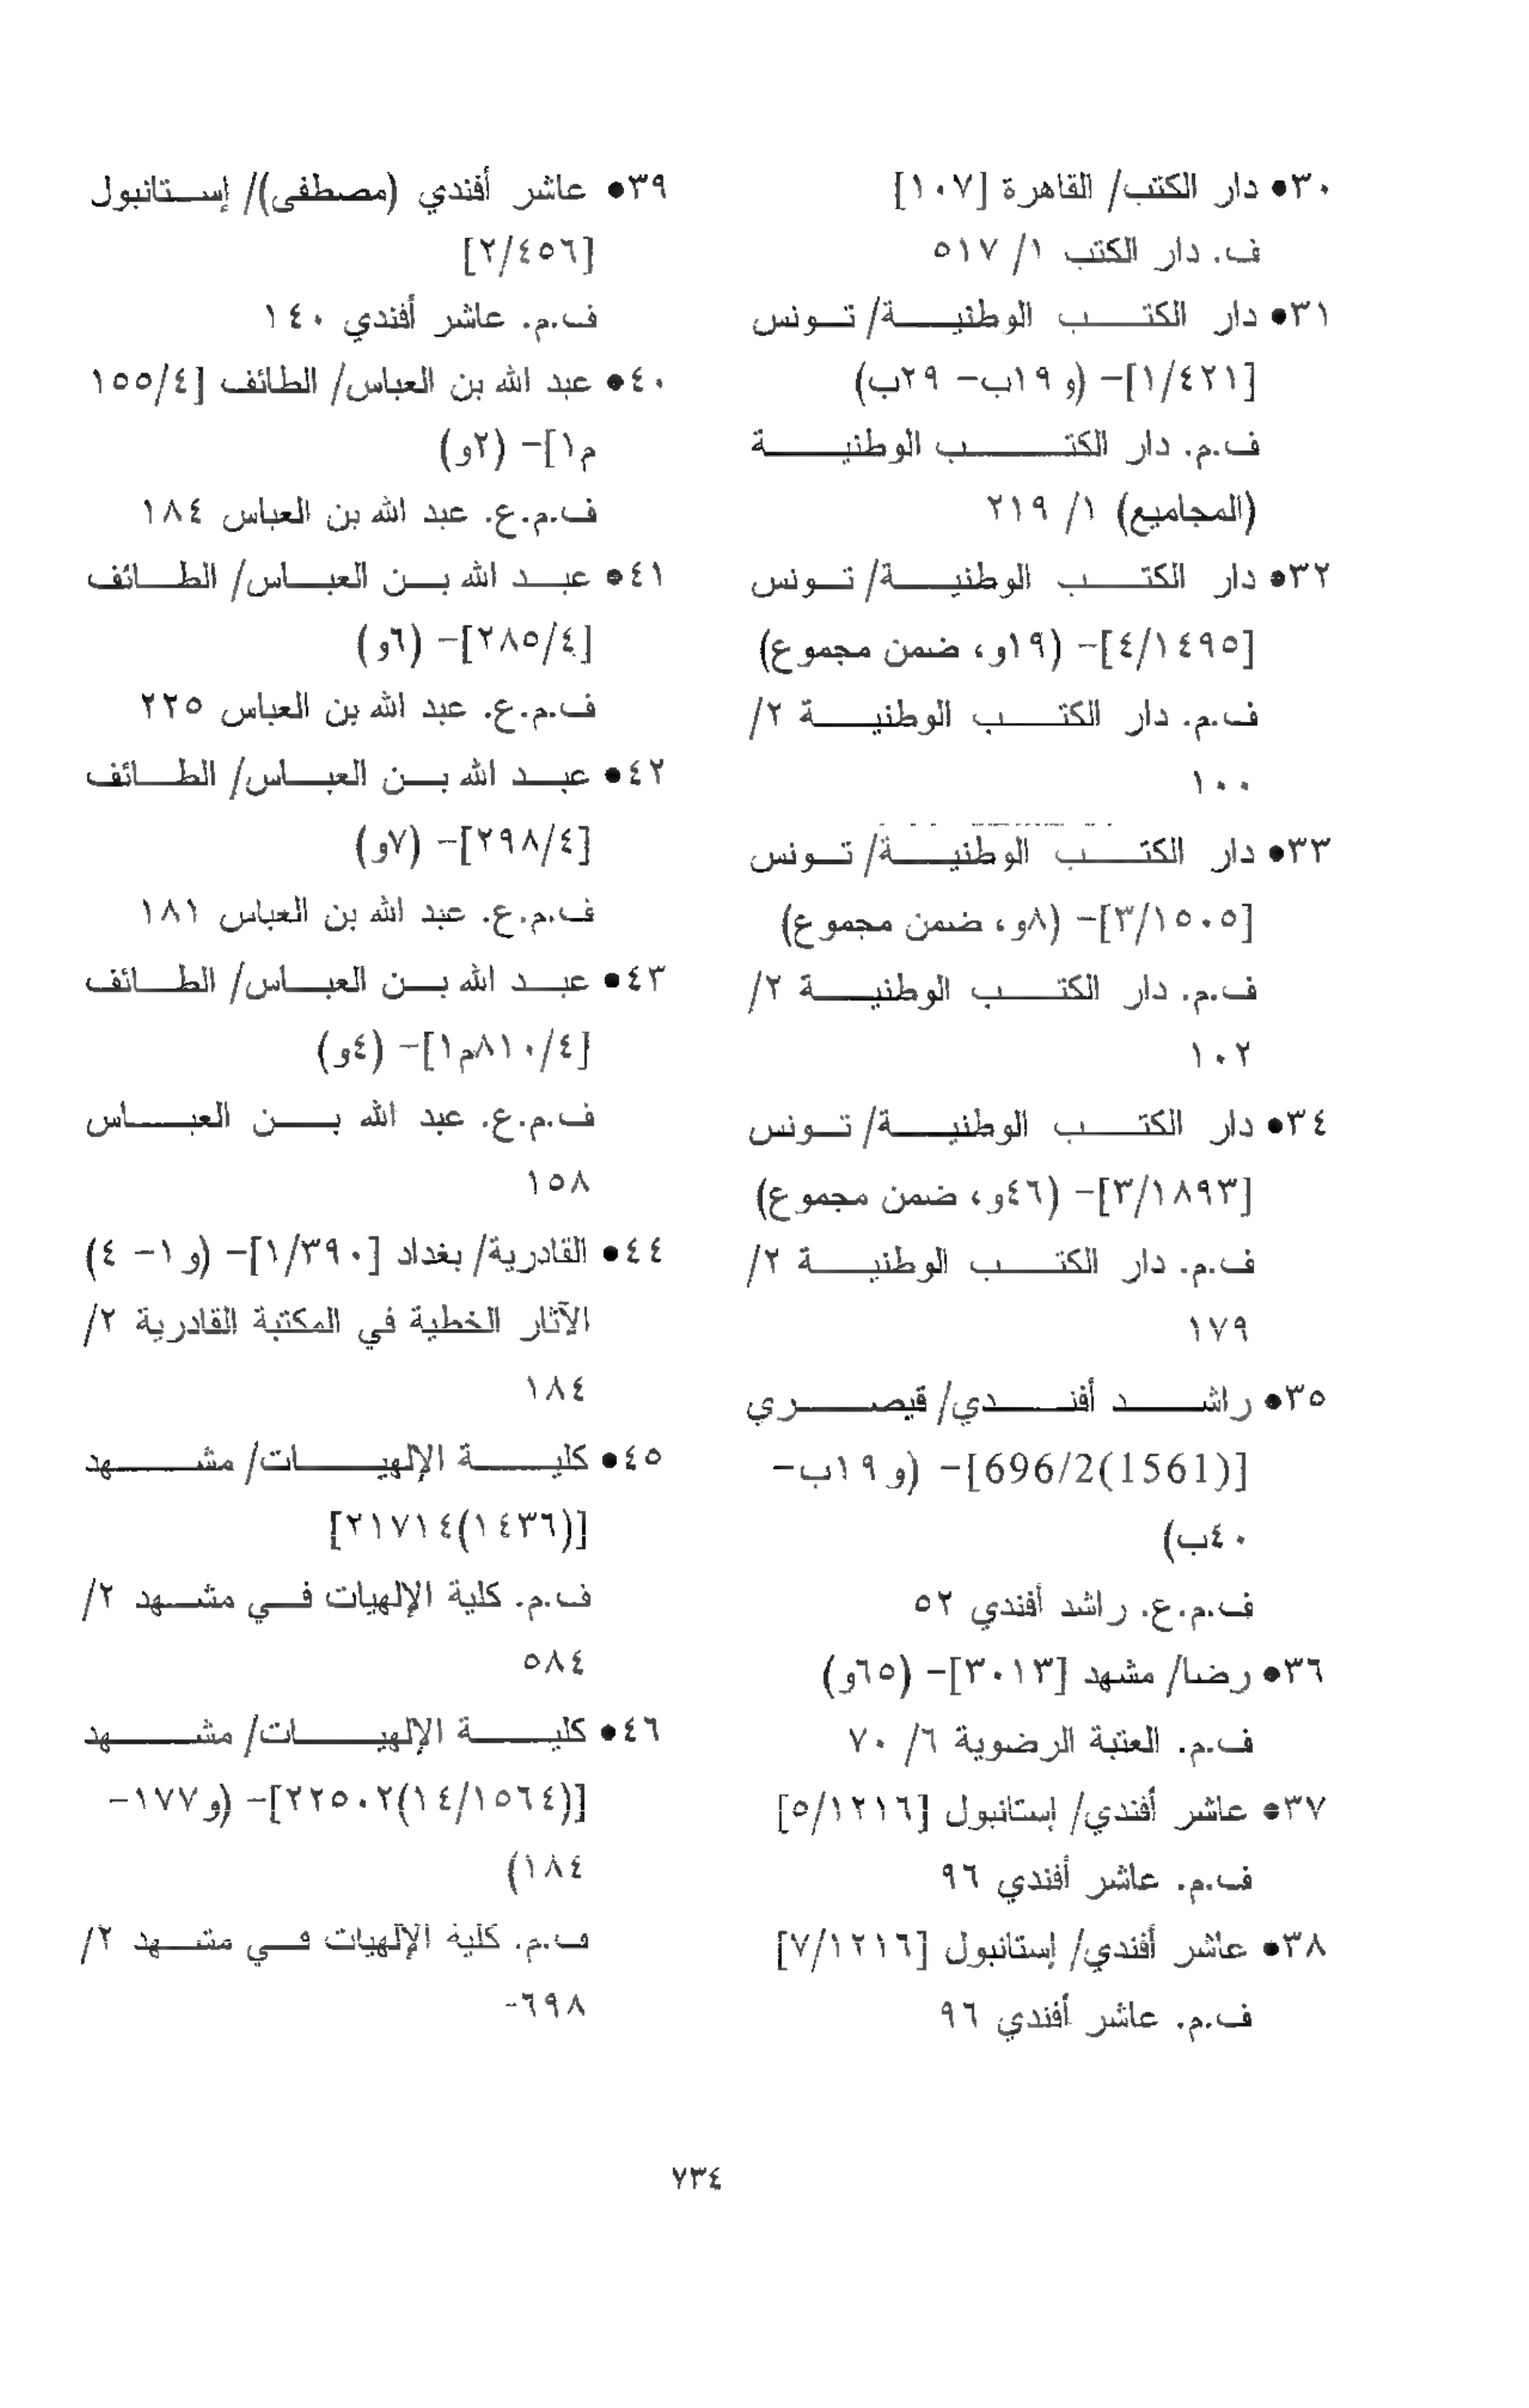 ٣٠• دار الكتب/ القاهرة [١٠٧]
ف. دار الكتب ١/ ٥١٧
٣١• دار الكتب الوطنية/ تونس
[١/٤٢١]- (و١٩ب- ٢٩ب)
ف.م. دار الكتب الوطنية
(المجاميع) ١/ ٢١٩
٣٢• دار الكتب الوطنية/ تونس
[٤/١٤٩٥]- (١٩و، ضمن مجموع)
ف.م. دار الكتب الوطنية ٢/
١٠٠
٣٣• دار الكتب الوطنية/ تونس
[٣/١٥٠٥]- (٨و، ضمن مجموع)
ف.م. دار الكتب الوطنية ٢/
١٠٢
٣٤• دار الكتب الوطنية/ تونس
[٣/١٨٩٣]- (٤٦و، ضمن مجموع)
ف.م. دار الكتب الوطنية ٢/
١٧٩
٣٥• راشد أفندي/ قيصري
[696/2(1561)]- (و١٩ب-
٤٠ب)
ف.م.ع. راشد أفندي ٥٢
٣٦• رضا/ مشهد [٣٠١٣]- (٦٥و)
ف.م. العتبة الرضوية ٦/ ٧٠
٣٧• عاشر أفندي/ إستانبول [٥/١٢١٦]
ف.م. عاشر أفندي ٩٦
٣٨• عاشر أفندي/ إستانبول [٧/١٢١٦]
ف.م. عاشر أفندي ٩٦
٣٩• عاشر أفندي (مصطفى)/ إستانبول
[٢/٤٥٦]
ف.م. عاشر أفندي ١٤٠
٤٠• عبد الله بن العباس/ الطائف [١٥٥/٤
م١]- (٢و)
ف.م.ع. عبد الله بن العباس ١٨٤
٤١• عبد الله بن العباس/ الطائف
[٢٨٥/٤]- (٦و)
ف.م.ع. عبد الله بن العباس ٢٢٥
٤٢• عبد الله بن العباس/ الطائف
[٢٩٨/٤]- (٧و)
ف.م.ع. عبد الله بن العباس ١٨١
٤٣• عبد الله بن العباس/ الطائف
[٨١٠/٤م١]- (٤و)
ف.م.ع. عبد الله بن العباس
١٥٨
٤٤• القادرية/ بغداد [١/٣٩٠]- (و١- ٤)
الآثار الخطية في المكتبة القادرية ٢/
١٨٤
٤٥• كلية الإلهيات/ مشهد
[(١٤٣٦)٢١٧١٤]
ف.م. كلية الإلهيات في مشهد ٢/
٥٨٤
٤٦• كلية الإلهيات/ مشهد
[(١٤/١٥٦٤)٢٢٥٠٢]- (و١٧٧-
١٨٤)
ف.م. كلية الإلهيات في مشهد ٢/
٦٩٨-
٧٣٤